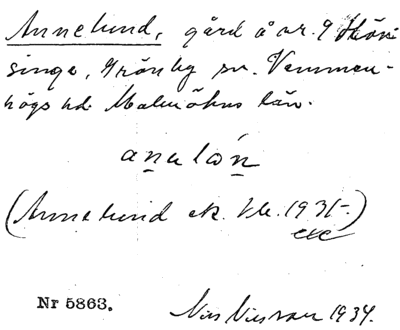 Annelund, gård å nr. 9 Skön-
singe, Grönby sn. Vemmen-
högs hd. Malmöhus län.
analón
(Annelund ek. kbl. 1931-.)
Nr 5863.
Nils Nilsson 1934.